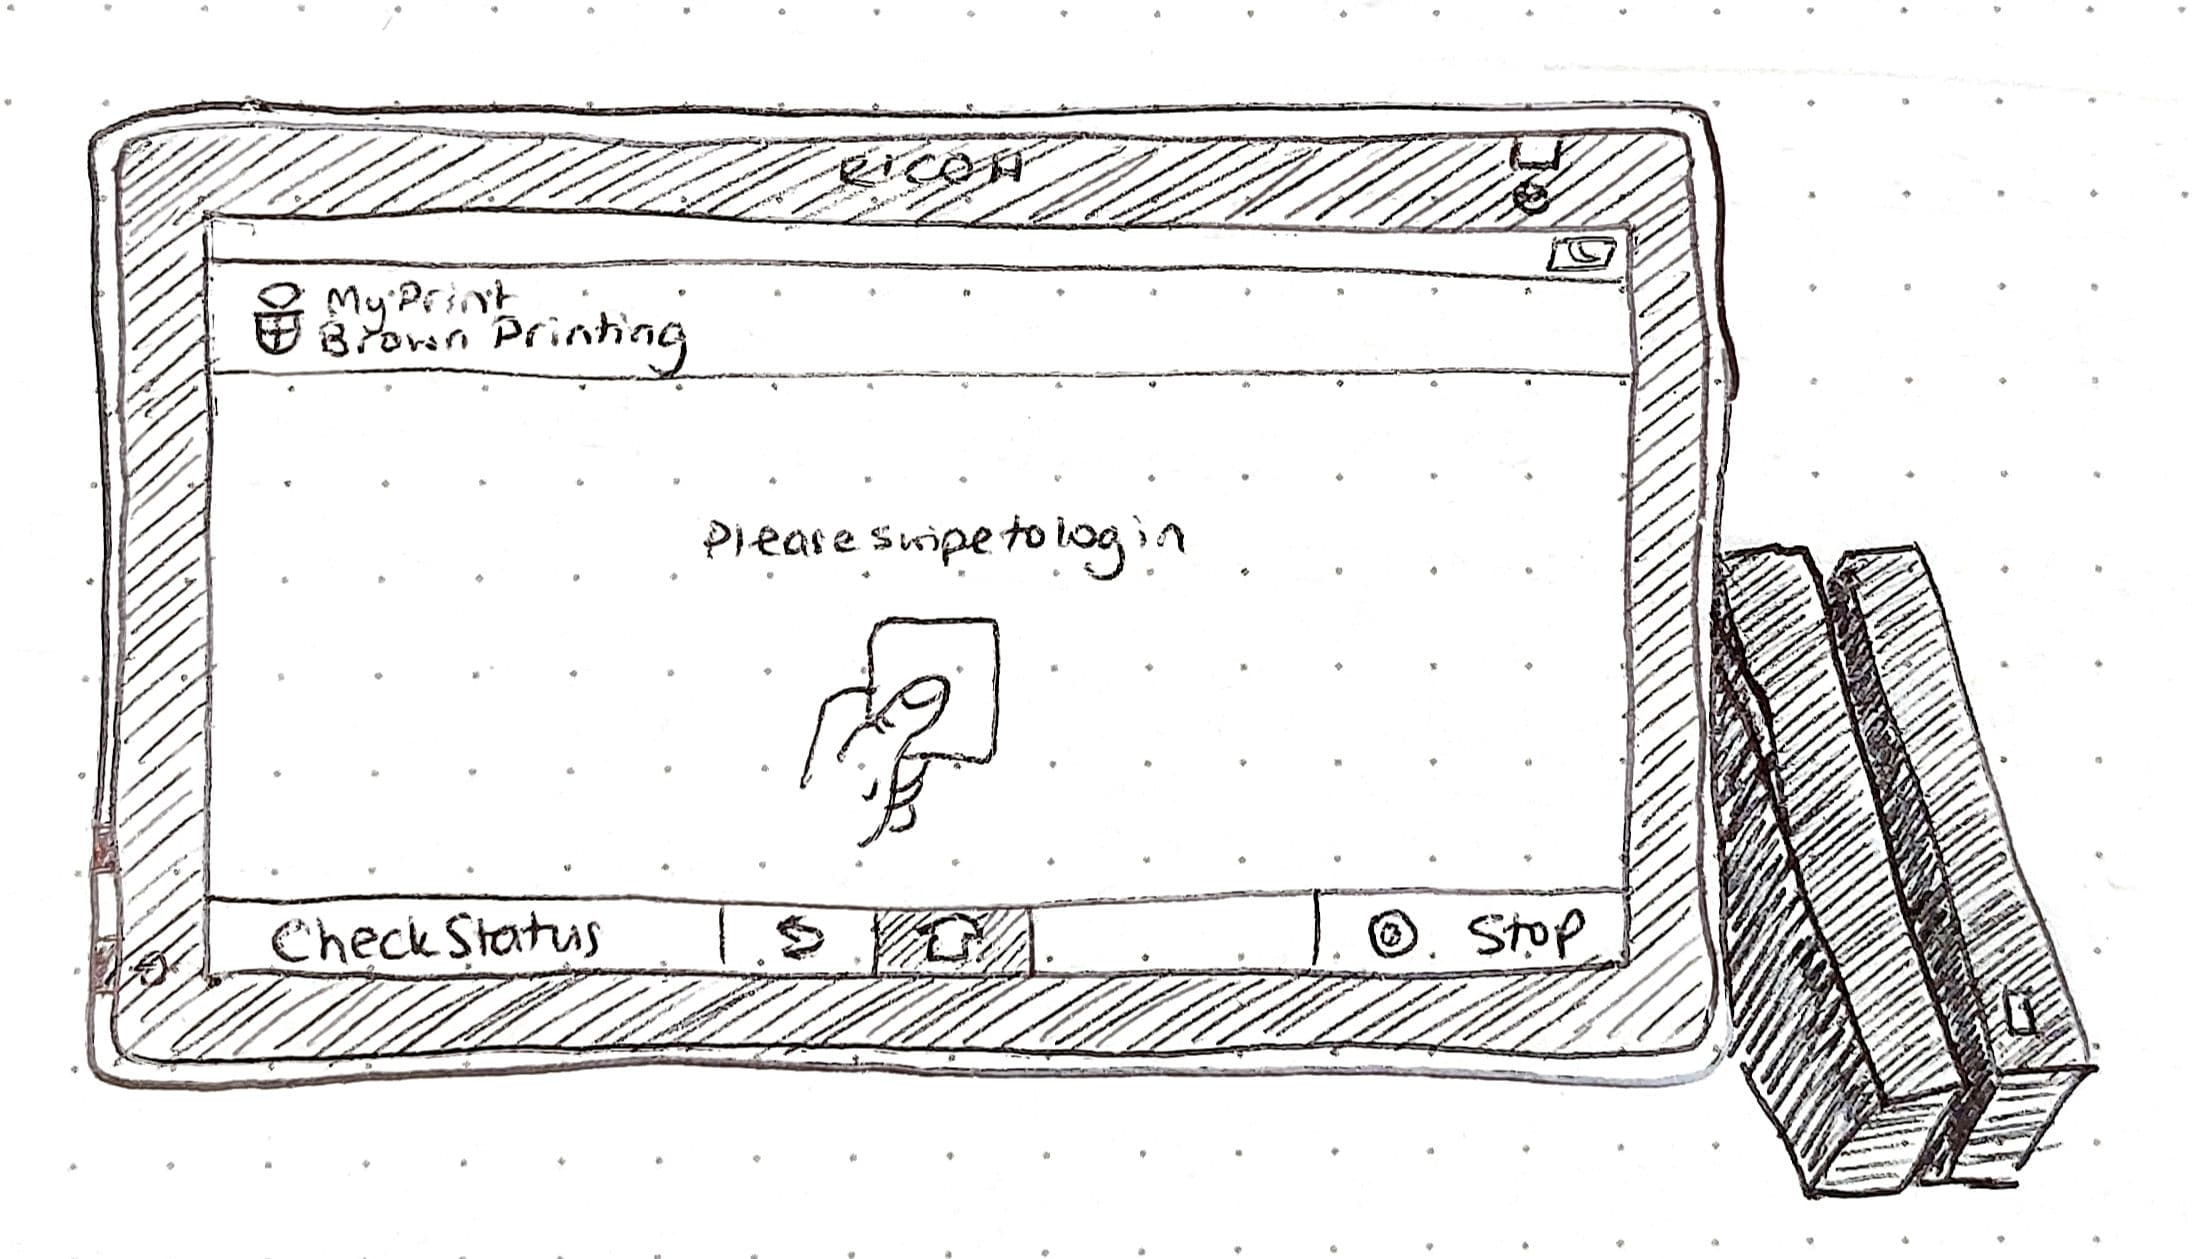 RICOH
MyPrint
Brown Printing
Please swipe to log in
Check Status
Stop